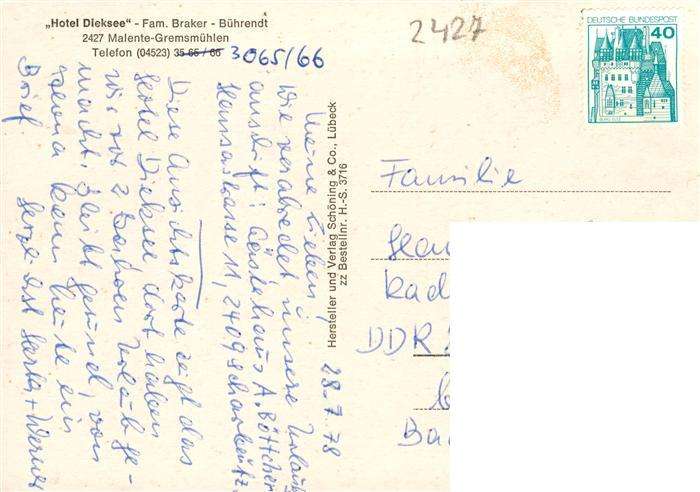 „Hotel Dieksee" - Fam. Braker - Bührendt
2427 Malente-Gremsmühlen
Telefon (04523) 35 65 / 66 3065/66
2427
DEUTSCHE BUNDESPOST
40
BURG ELTZ
Hersteller und Verlag Schöning & Co., Lübeck
zz Bestellnr. H.-S. 3716
28.7.78
Meine Lieben!
Wie verabredet unsere Urlaubs
anschrift: Gästehaus A. Böttcher
Hansastrasse 11, 2409 Scharbeutz.
Diese Ansichtskarte zeigt das
Hotel Dieksee dort haben
wir vor 2 Jahren Urlaub ge-
macht. Bleibt gesund, von
kam heute ein
Brief. Herzlichst Herta + Werner
Familie
DDR